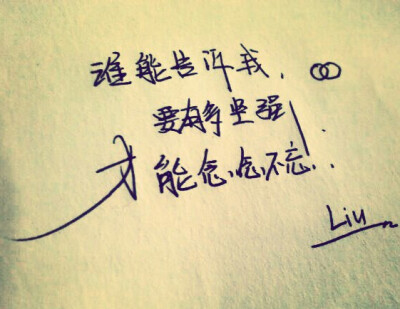 谁能告诉我,
要有多坚强
才能念念不忘!..
Liu